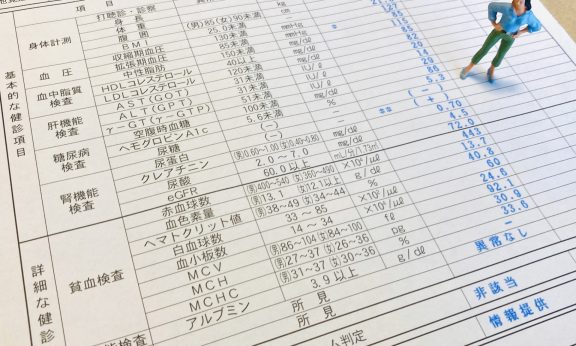 項 目
基本的な健診項目
身体計測
打聴診・診察
身長 cm
体重 kg
腹囲 (男)85(女)90未満 cm
BMI 25.0未満
血圧
収縮期血圧 130未満 mmHg
拡張期血圧 85未満 mmHg
血中脂質検査
中性脂肪 150未満 mg/dℓ
HDLコレステロール 40以上
LDLコレステロール 120未満
肝機能検査
AST(GOT) 31未満 IU/ℓ
ALT(GPT) 31未満 IU/ℓ
γ-GT(γ-GTP) 51未満 IU/ℓ
糖尿病検査
空腹時血糖 100未満 mg/dℓ 86
ヘモグロビンA1c 5.6未満 % 5.3
尿糖 (−) (−)
腎機能検査
尿蛋白 (−) ** (+)
クレアチニン 男0.60~1.00女0.40~0.80 mg/dℓ 0.70
尿酸 2.0～7.0 mg/dℓ 4.5
eGFR 60.0以上 72.0
詳細な健診
貧血検査
赤血球数 男400~540女360~490 ×10⁴/μℓ 443
血色素量 男13.1女12.1以上 g/dℓ 13.7
ヘマトクリット値 男38~49女34~44 % 40.8
白血球数 33～85 ×10²/μℓ 60
血小板数 14～34 ×10⁴/μℓ 24.6
MCV 男86~104女84~100 fℓ 92.1
MCH 男27~37女26~36 pg 30.9
MCHC 男31~37女30~36 % 33.6
アルブミン 3.9以上 g/dℓ −
所見 異常なし
非該当
情報提供